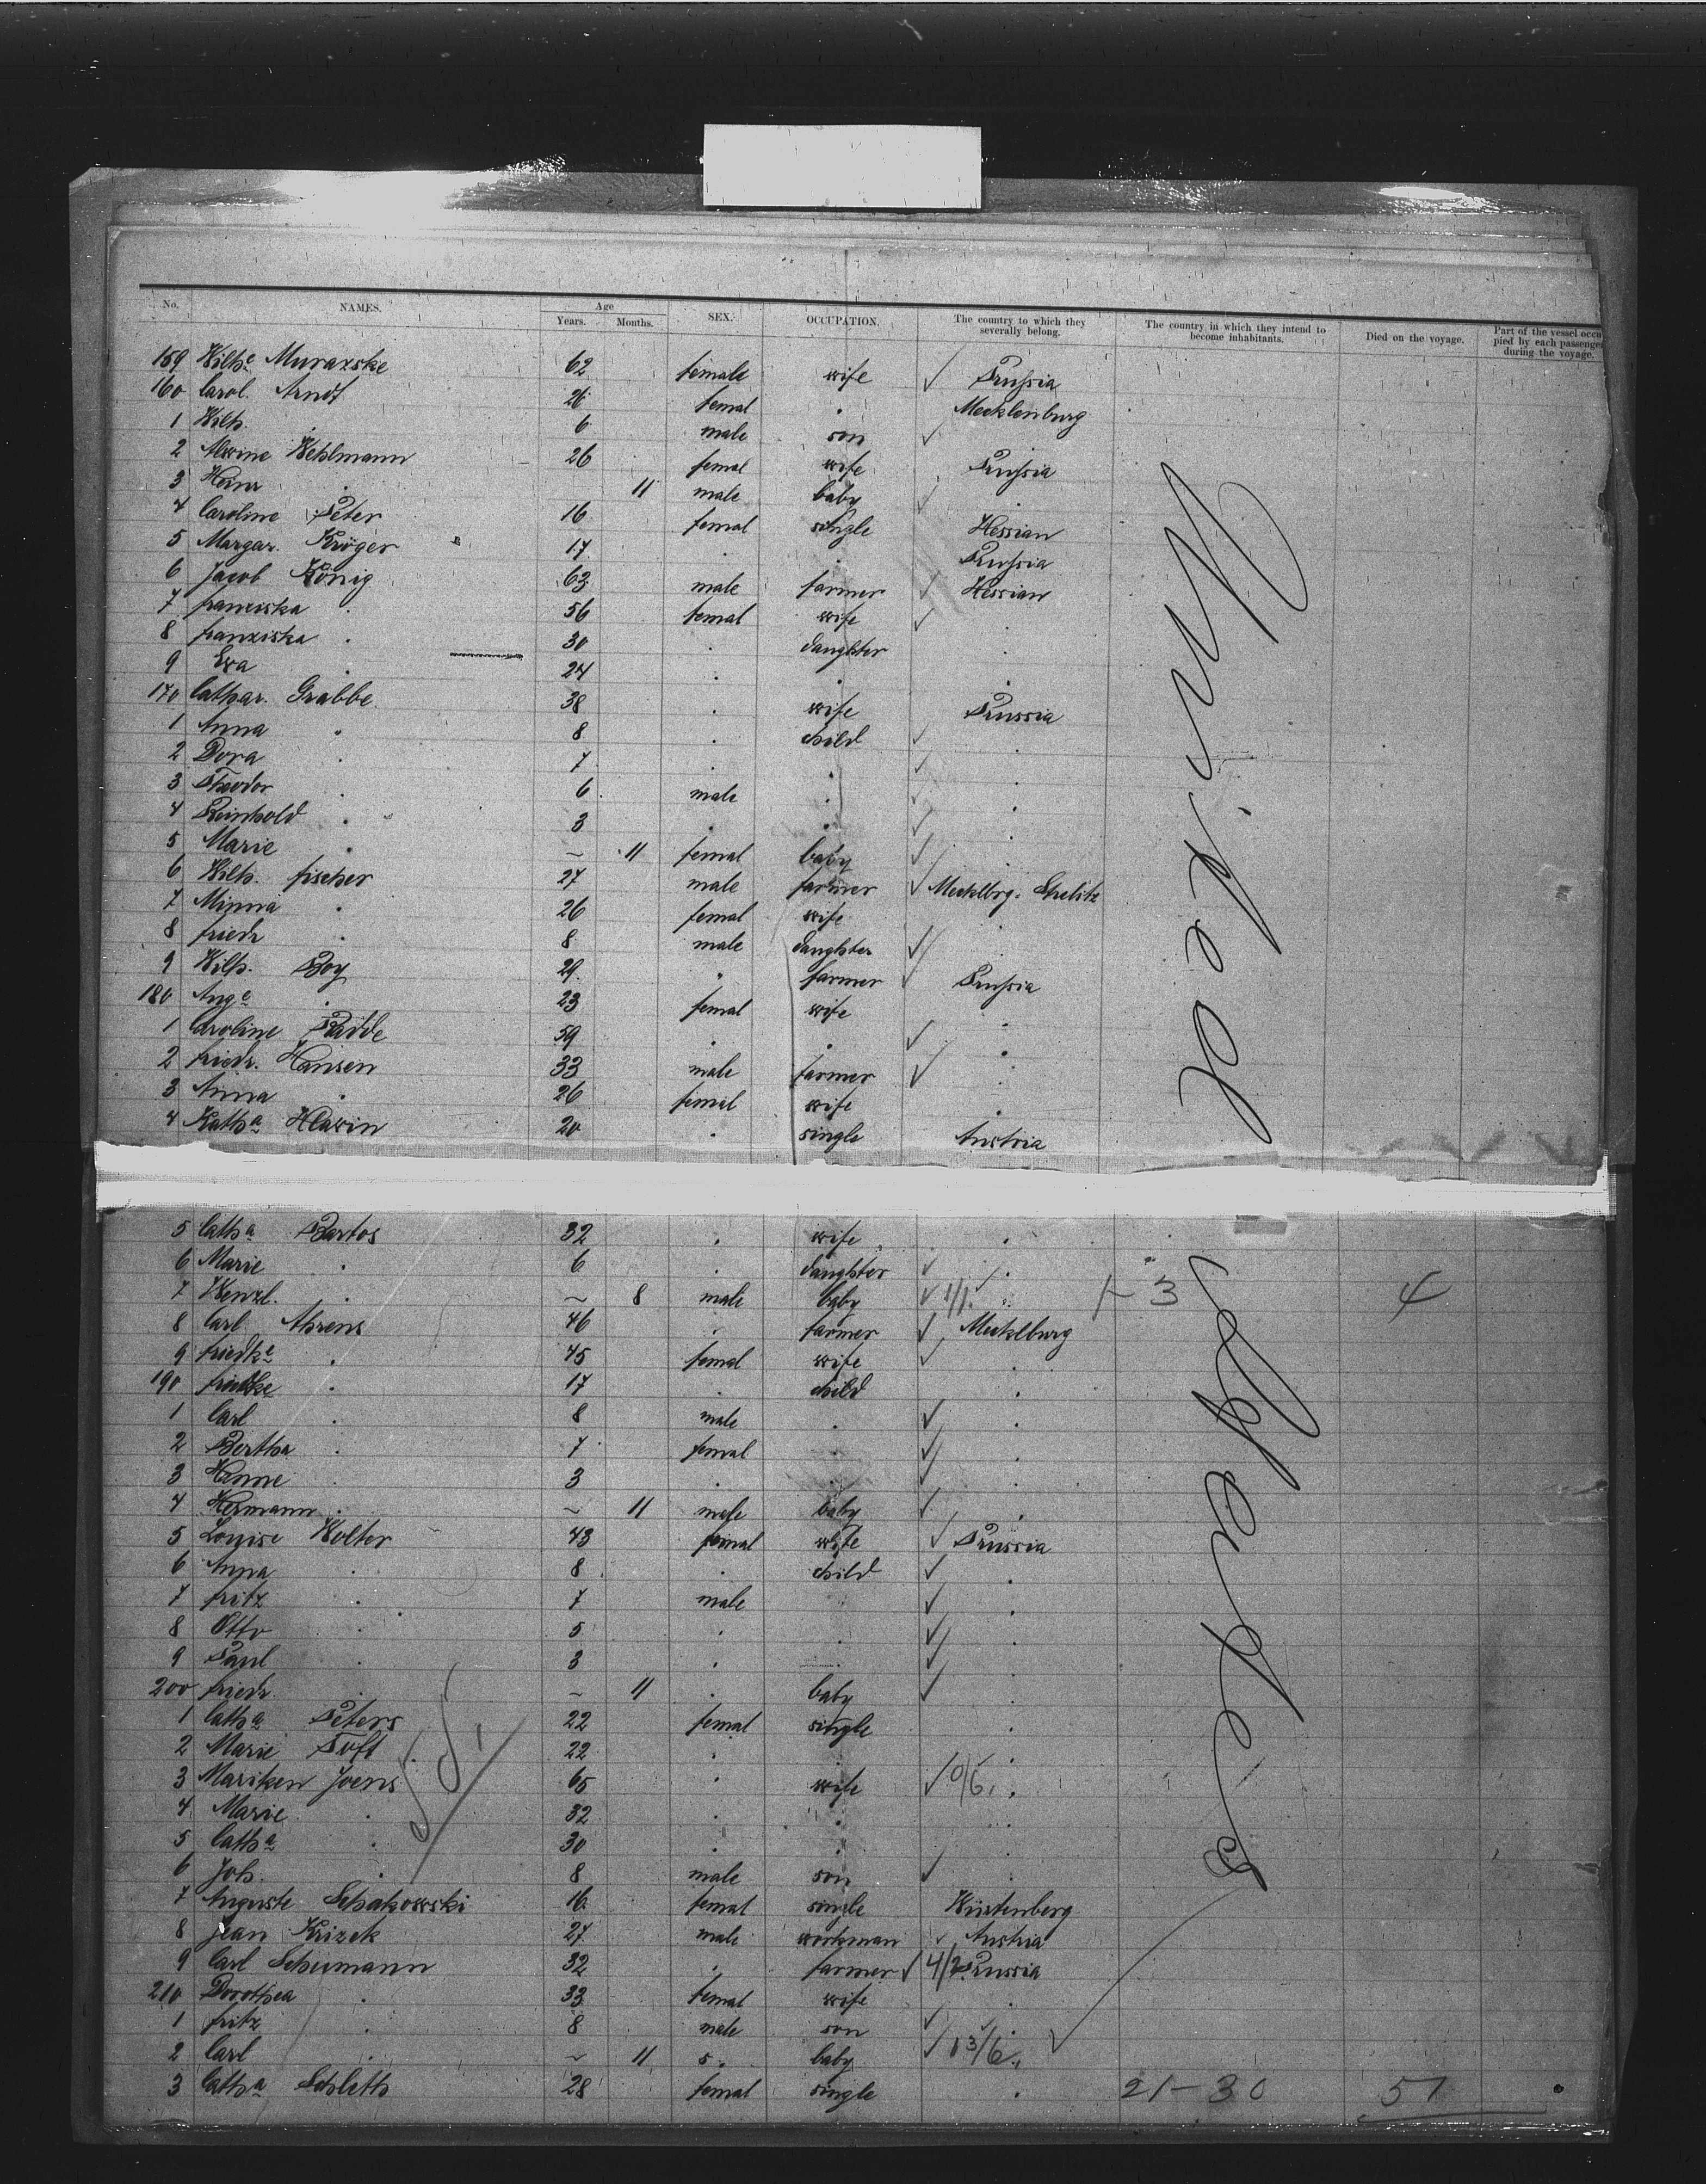 No. NAMES. Age Years. Months. SEX. OCCUPATION. The country to which they severally belong. The country in which they intend to become inhabitants. Died on the voyage. Part of the vessel occupied by each passenger during the voyage.
159 Wilhe Murazske 62 female wife ✓ Prussia
160 Carol. Arndt 26 femal . Mecklenburg
1 Wilh. 6 male son ✓
2 Alwine Wehlmann 26 femal wife Prussia
3 Heinr . 11 male baby ✓ .
4 Caroline Peter 16 femal single Hessian
5 Margar. Kröger 17 . . Prussia
6 Jacob König 63 male farmer ✓ Hessian
7 franziska . 56 femal wife ✓ .
8 franziska . 30 . daughter .
9 Eva . 24 . .
170 Cathar. Grabbe 38 . wife Prussia
1 Anna . 8 . child ✓ .
2 Dora . 7 . . ✓ .
3 Theodor . 6 male . ✓ .
4 Reinhold . 3 . . ✓ .
5 Marie . ~ 11 femal baby ✓ .
6 Wilh. fischer 27 male farmer ✓ Mecklbrg. Strelitz
7 Minna . 26 femal wife .
8 friedr . 8 male daughter ✓ .
9 Wilh. Boy 29 " farmer ✓ Prussia
180 Auge . 23 femal wife .
1 Caroline Radde 59 . . ✓ .
2 friedr. Hansen 33 male farmer ✓ .
3 Anna . 26 femal wife .
4 Katha Hlawin 20 . single Austria
5 Catha Bartos 32 . wife .
6 Marie . 6 . daughter ✓ .
7 Wenzl. . ~ 8 male baby ✓ 1/1. 1-3 4
8 Carl Ahrens 46 . farmer ✓ Mecklburg
9 friedke . 45 femal wife ✓ .
190 friedke . 17 . child .
1 Carl . 8 male . ✓ .
2 Bertha . 7 femal . ✓ .
3 Henne 3 . . ✓ .
4 Hermann . ~ 11 male baby ✓ .
5 Louise Wolter 43 femal wife ✓ Prussia
6 Anna . 8 . child ✓ .
7 fritz . 7 male ✓ .
8 Otto . 5 . . ✓ .
9 Paul . 3 . ✓ .
200 friedr. . ~ 11 . baby ✓ .
1 Catha Peters 22 femal single .
2 Marie Toft 22 . .
3 Mariken Joens 65 . wife ✓ 0/6. .
4 Marie . 32 . . .
5 Catha . 30 . .
6 Joh. . 8 male son ✓ .
7 Auguste Schakowski 16 femal single Würtenberg
8 Jean Krizek 27 male workman ✓ Austria
9 Carl Schumann 32 . farmer ✓ 4/2 Prussia
210 Dorothea . 33 femal wife .
1 fritz . 8 male son ✓ .
2 Carl . ~ 11 s. baby ✓ 13/6. ✓
3 Catha Schlith 28 femal single . 21-30 51
United
States